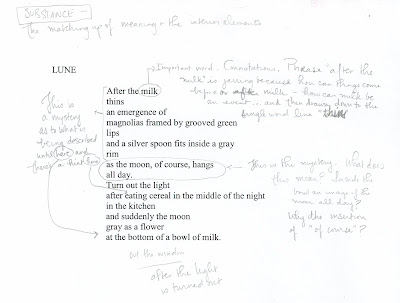 SUBSTANCE —
The matching up of meaning + the interior elements
LUNE
Important word. Connotations. Phrase "after the
milk" is jarring because how can things come
before or after milk - how can milk be
an event... and then draws down to the
single word line
After the milk
thins
an emergence of
magnolias framed by grooved green
lips
and a silver spoon fits inside a gray
rim
as the moon, of course, hangs
all day.
Turn out the light
after eating cereal in the middle of the night
in the kitchen
and suddenly the moon
gray as a flower
at the bottom of a bowl of milk.
This is
a mystery
as to what is
being described
until here and
there's a
This is the mystery. What does
this mean? Inside the
bowl an image of the
moon all day?
Why the insertion
of "of course"?
out the window
after the light
is turned out